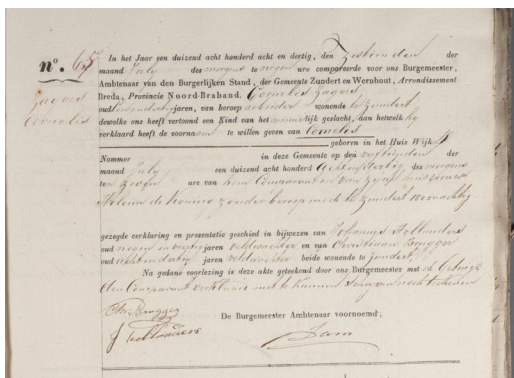 nº. 67
Zagers
Cornelis
In het Jaar een duizend acht honderd acht en dertig, den zestienden der
maand July des morgens te negen ure compareerde voor ons Burgemeester,
Ambtenaar van den Burgerlijken Stand, der Gemeente Zundert en Wernhout, Arrondissement
Breda, Provincie Noord-Braband. Cornelis Zagers
oud jaren, van beroep wonende te Zundert
dewelke ons heeft vertoond een Kind van het mannelijk geslacht, aan hetwelk hij
verklaard heeft de voornaam te willen geven van Cornelis
geboren in het Huis Wijk
Nommer in deze Gemeente op den der
maand July een duizend acht honderd acht en dertig des morgens
ten zeven ure van hem Comparant en van zijne huisvrouw
de Koning zonder beroep mede te Zundert woonachtig
gezegde verklaring en presentatie geschied in bijwezen van Johannis Hollanders
oud negen en jaren veldwachter en van Christiaan Brugger
oud jaren veldwachter beide wonende te Zundert,
Na gedane voorlezing is deze akte geteekend door ons Burgemeester met de Getuigen
den Comparant verklaarde niet te kunnen
Chr Brugger
J Hollanders
De Burgemeester Ambtenaar voornoemd,